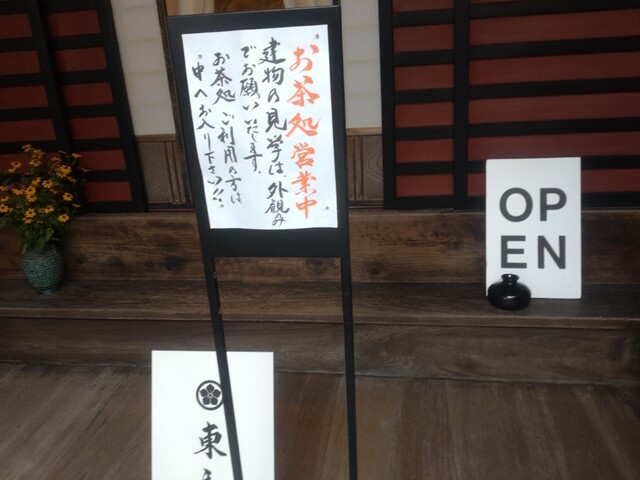 お茶処営業中
建物の見学は、外観み
でお願いいたします。
お茶処ご利用の方は
中へお入り下さい!!。
OP
EN
東